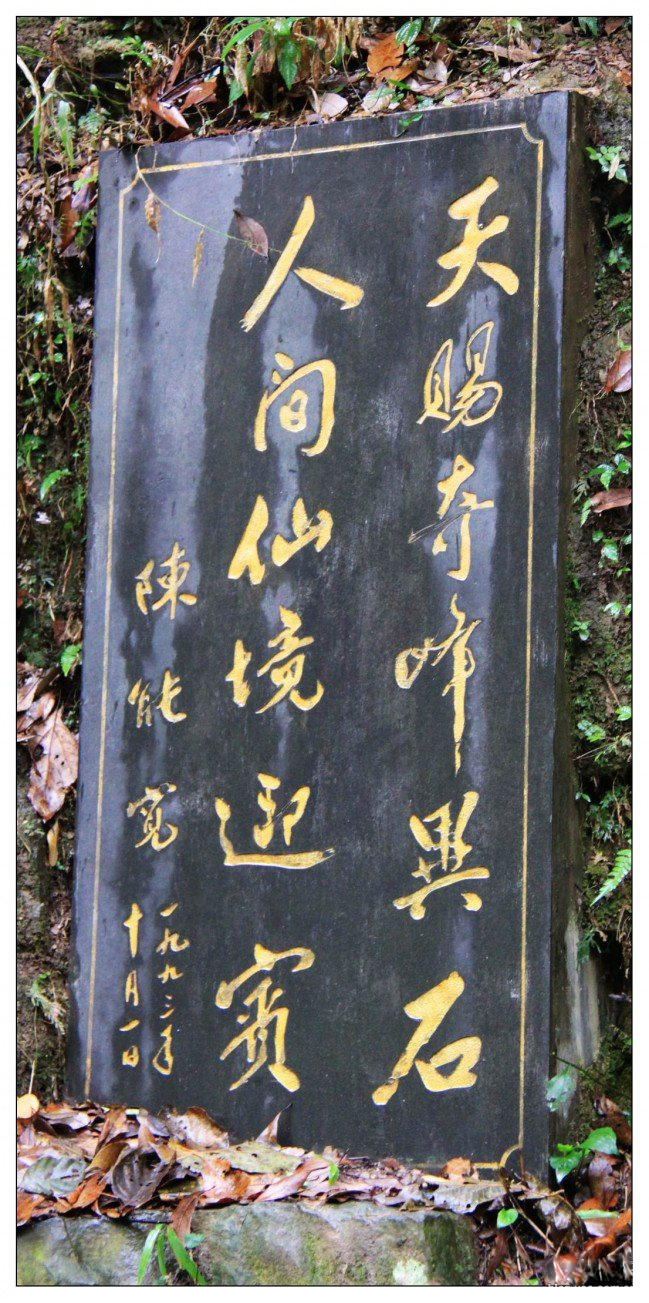 天赐奇峰異石
人间仙境迎賓
陳能寬
一九九三年
十月一日